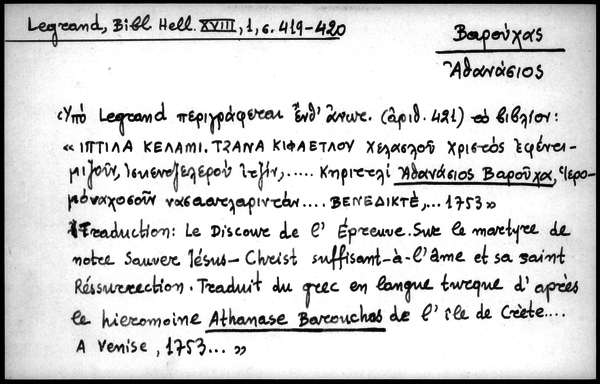 Legrand, Bibl Hell. XVIII, 1, σ. 419-420
Βαρούχας
Ἀθανάσιος
Ὑπό Legrand περιγράφεται ἔνθ' ἀνωτ. (ἀριθ. 421) τό βιβλίον:
« ΙΠΤΙΛΑ ΚΕΛΑΜΙ. ΤΖΑΝΑ ΚΙΦΑΕΤΛΟΥ Χελασλοῦ Χριστός Ἐφέντι-
μιζοῦν, Ἰσκεντζελεροῦ ἰτζίν, ..... Κηριττλί Ἀθανάσιος Βαροῦχα, Ἱερο-
μόναχοσοῦν .... ΒΕΝΕΔΙΚΤΕ, ... 1753 »
Traduction: Le Discours de l' Épreuve. Sur le martyre de
notre Sauver Jésus-Christ suffisant-à-l'âme et sa saint
Réssurrection. Traduit du grec en langue turque d' après
le hieromoine Athanase Barouchas de l' île de Crète....
A Venise, 1753... »